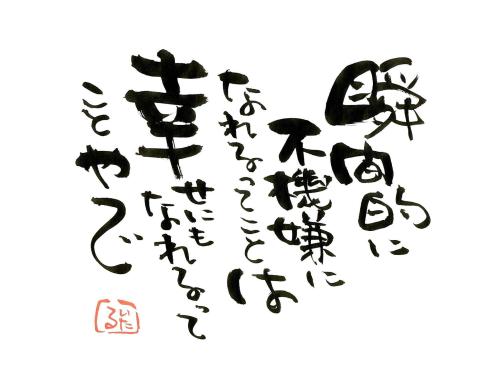 瞬間的に
不機嫌に
なれるってことは
幸せにも
なれるって
ことやで